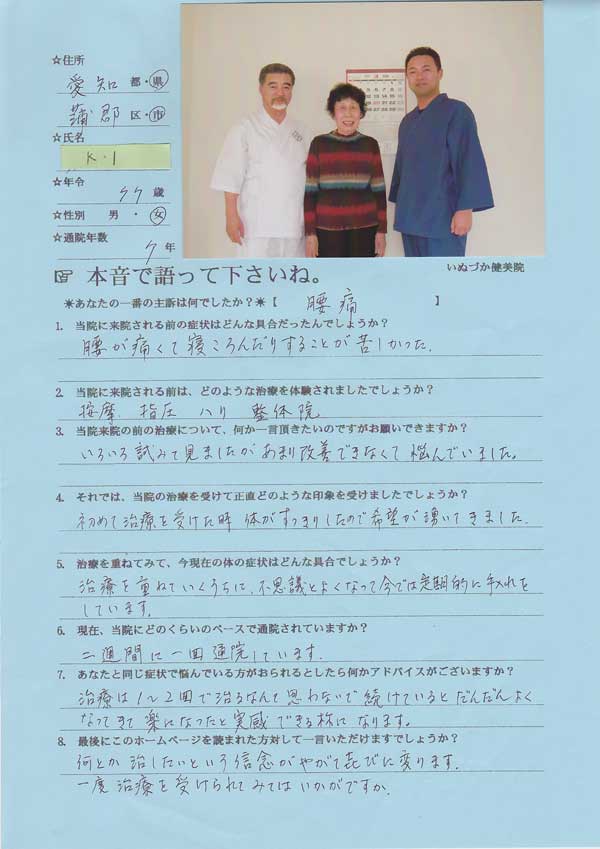 ☆住所
愛知 都・県
蒲郡 区・市
☆氏名
K・I
☆年令
77 歳
☆性別 男・女
☆通院年数
7 年
いぬづか健美院
☞ 本音で語って下さいね。
✳あなたの一番の主訴は何でしたか？✳【 腰痛 】
1. 当院に来院される前の症状はどんな具合だったんでしょうか？
腰が痛くて寝ころんだりすることが苦しかった.
2. 当院に来院される前は、どのような治療を体験されましたでしょうか？
按摩. 指圧 ハリ 整体院
3. 当院来院の前の治療について、何か一言頂きたいのですがお願いできますか？
いろいろ試みて見ましたがあまり改善できなくて悩んでいました。
4. それでは、当院の治療を受けて正直どのような印象を受けましたでしょうか？
初めて治療を受けた時 体がすっきりしたので希望が湧いてきました.
5. 治療を重ねてみて、今現在の体の症状はどんな具合でしょうか？
治療を重ねていくうちに、不思議とよくなって今では定期的に手入れを
しています.
6. 現在、当院にどのくらいのペースで通院されていますか？
二週間に一回通院しています.
7. あなたと同じ症状で悩んでいる方がおられるとしたら何かアドバイスがございますか？
治療は1～2回で治るなんて思わないで続けているとだんだんよく
なってきて楽になったと実感できる様になります。
8. 最後にこのホームページを読まれた方対して一言いただけますでしょうか？
何とか治したいという信念がやがて喜びに変ります.
一度治療を受けられてみてはいかがですか.